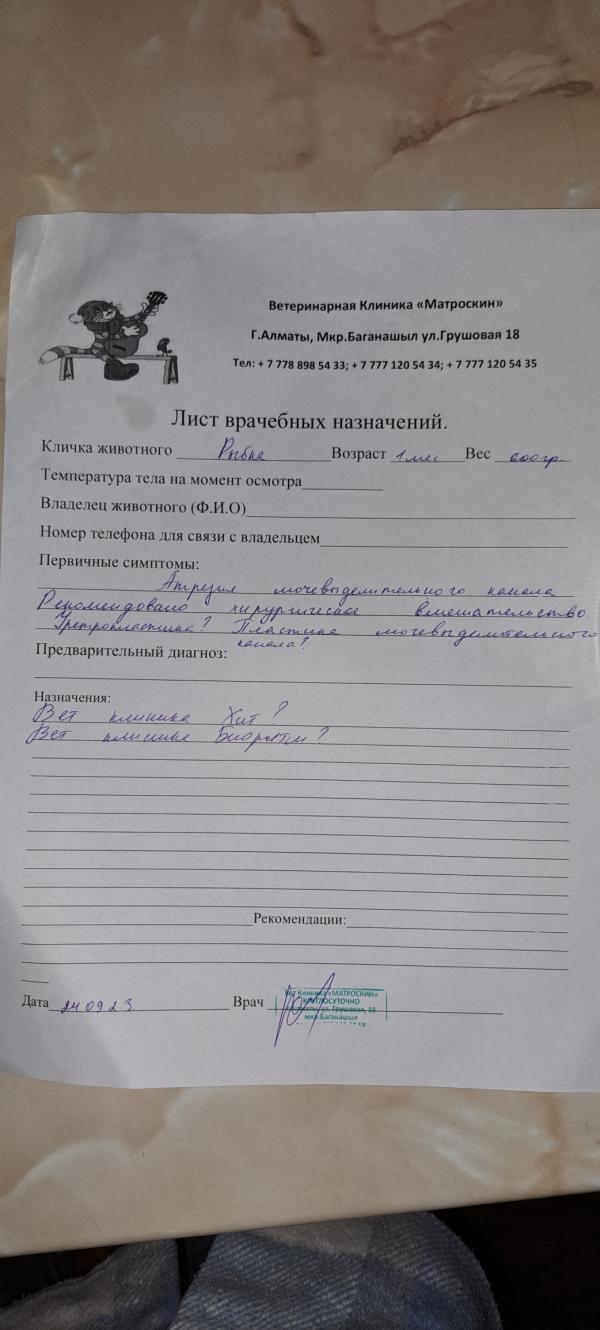 Ветеринарная Клиника «Матроскин»
Г.Алматы, Мкр.Баганашыл ул.Грушовая 18
Тел: + 7 778 898 54 33; + 7 777 120 54 34; + 7 777 120 54 35
Лист врачебных назначений.
Кличка животного Рыбка Возраст 1 мес Вес 600гр.
Температура тела на момент осмотра
Владелец животного (Ф.И.О)
Номер телефона для связи с владельцем
Первичные симптомы:
Атрезия мочевыделительного канала
Рекомендовано хирургическое вмешательство.
Уретропластика? Пластика мочевыделительного
канала?
Предварительный диагноз:
Назначения:
Вет клиника Хит?
Вет клинике ?
Рекомендации:
Дата 24 09 23. Врач
Вет Клиника «МАТРОСКИН»
КРУГЛОСУТОЧНО
г.Алматы ул. Грушовая, 18
мкр.Баганашыл